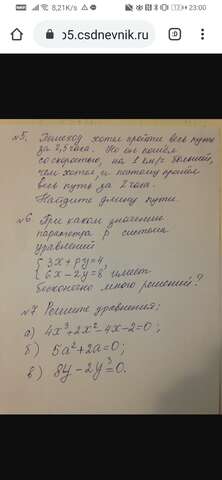 8,21К/s 23:00
o5.csdnevnik.ru
№5. Пешеход хотел пройти весь путь
за 2,5 часа. Но он пошёл
со скоростью, на 1 км/ч большей,
чем хотел, и поэтому прошёл
весь путь за 2 часа.
Найдите длину пути.
№6 При каком значении
параметра p система
уравнений
{ 3x + py = 4,
{ 6x - 2y = 8, имеет
бесконечно много решений?
№7 Решите уравнения:
а) 4x³ + 2x² - 4x - 2 = 0;
б) 5a² + 2a = 0;
в) 8y - 2y³ = 0.